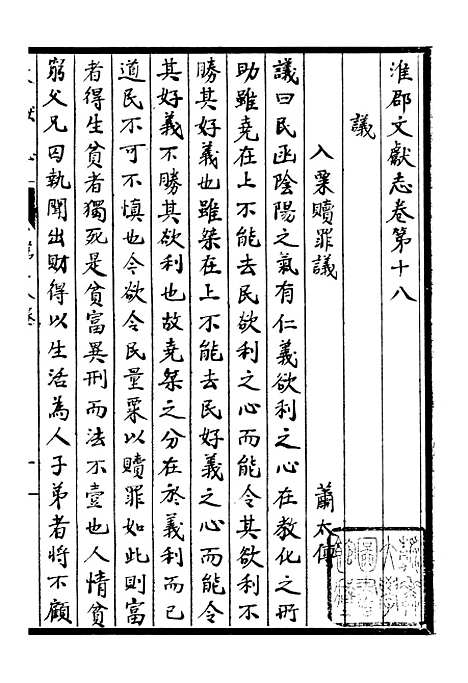 淮郡文獻志卷第十八
議
入粟贖罪議 蕭太傅
議曰民函陰陽之氣有仁義欲利之心在教化之所
助雖堯在上不能去民欲利之心而能令其欲利不
勝其好義也雖桀在上不能去民好義之心而能令
其好義不勝其欲利也故堯桀之分在於義利而已
道民不可不慎也今欲令民量粟以贖罪如此則富
者得生貧者獨死是貧富異刑而法不壹也人情貧
窮父兄囚執聞出財得以生活為人子弟者將不顧